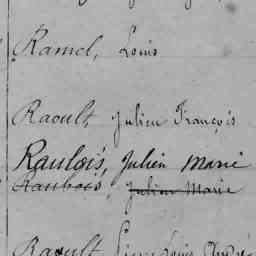 Ramel, Louis
Raoult, Julien François
Raulois, Julien Marie
Raubois, Julien Marie
Raoult, Louis André